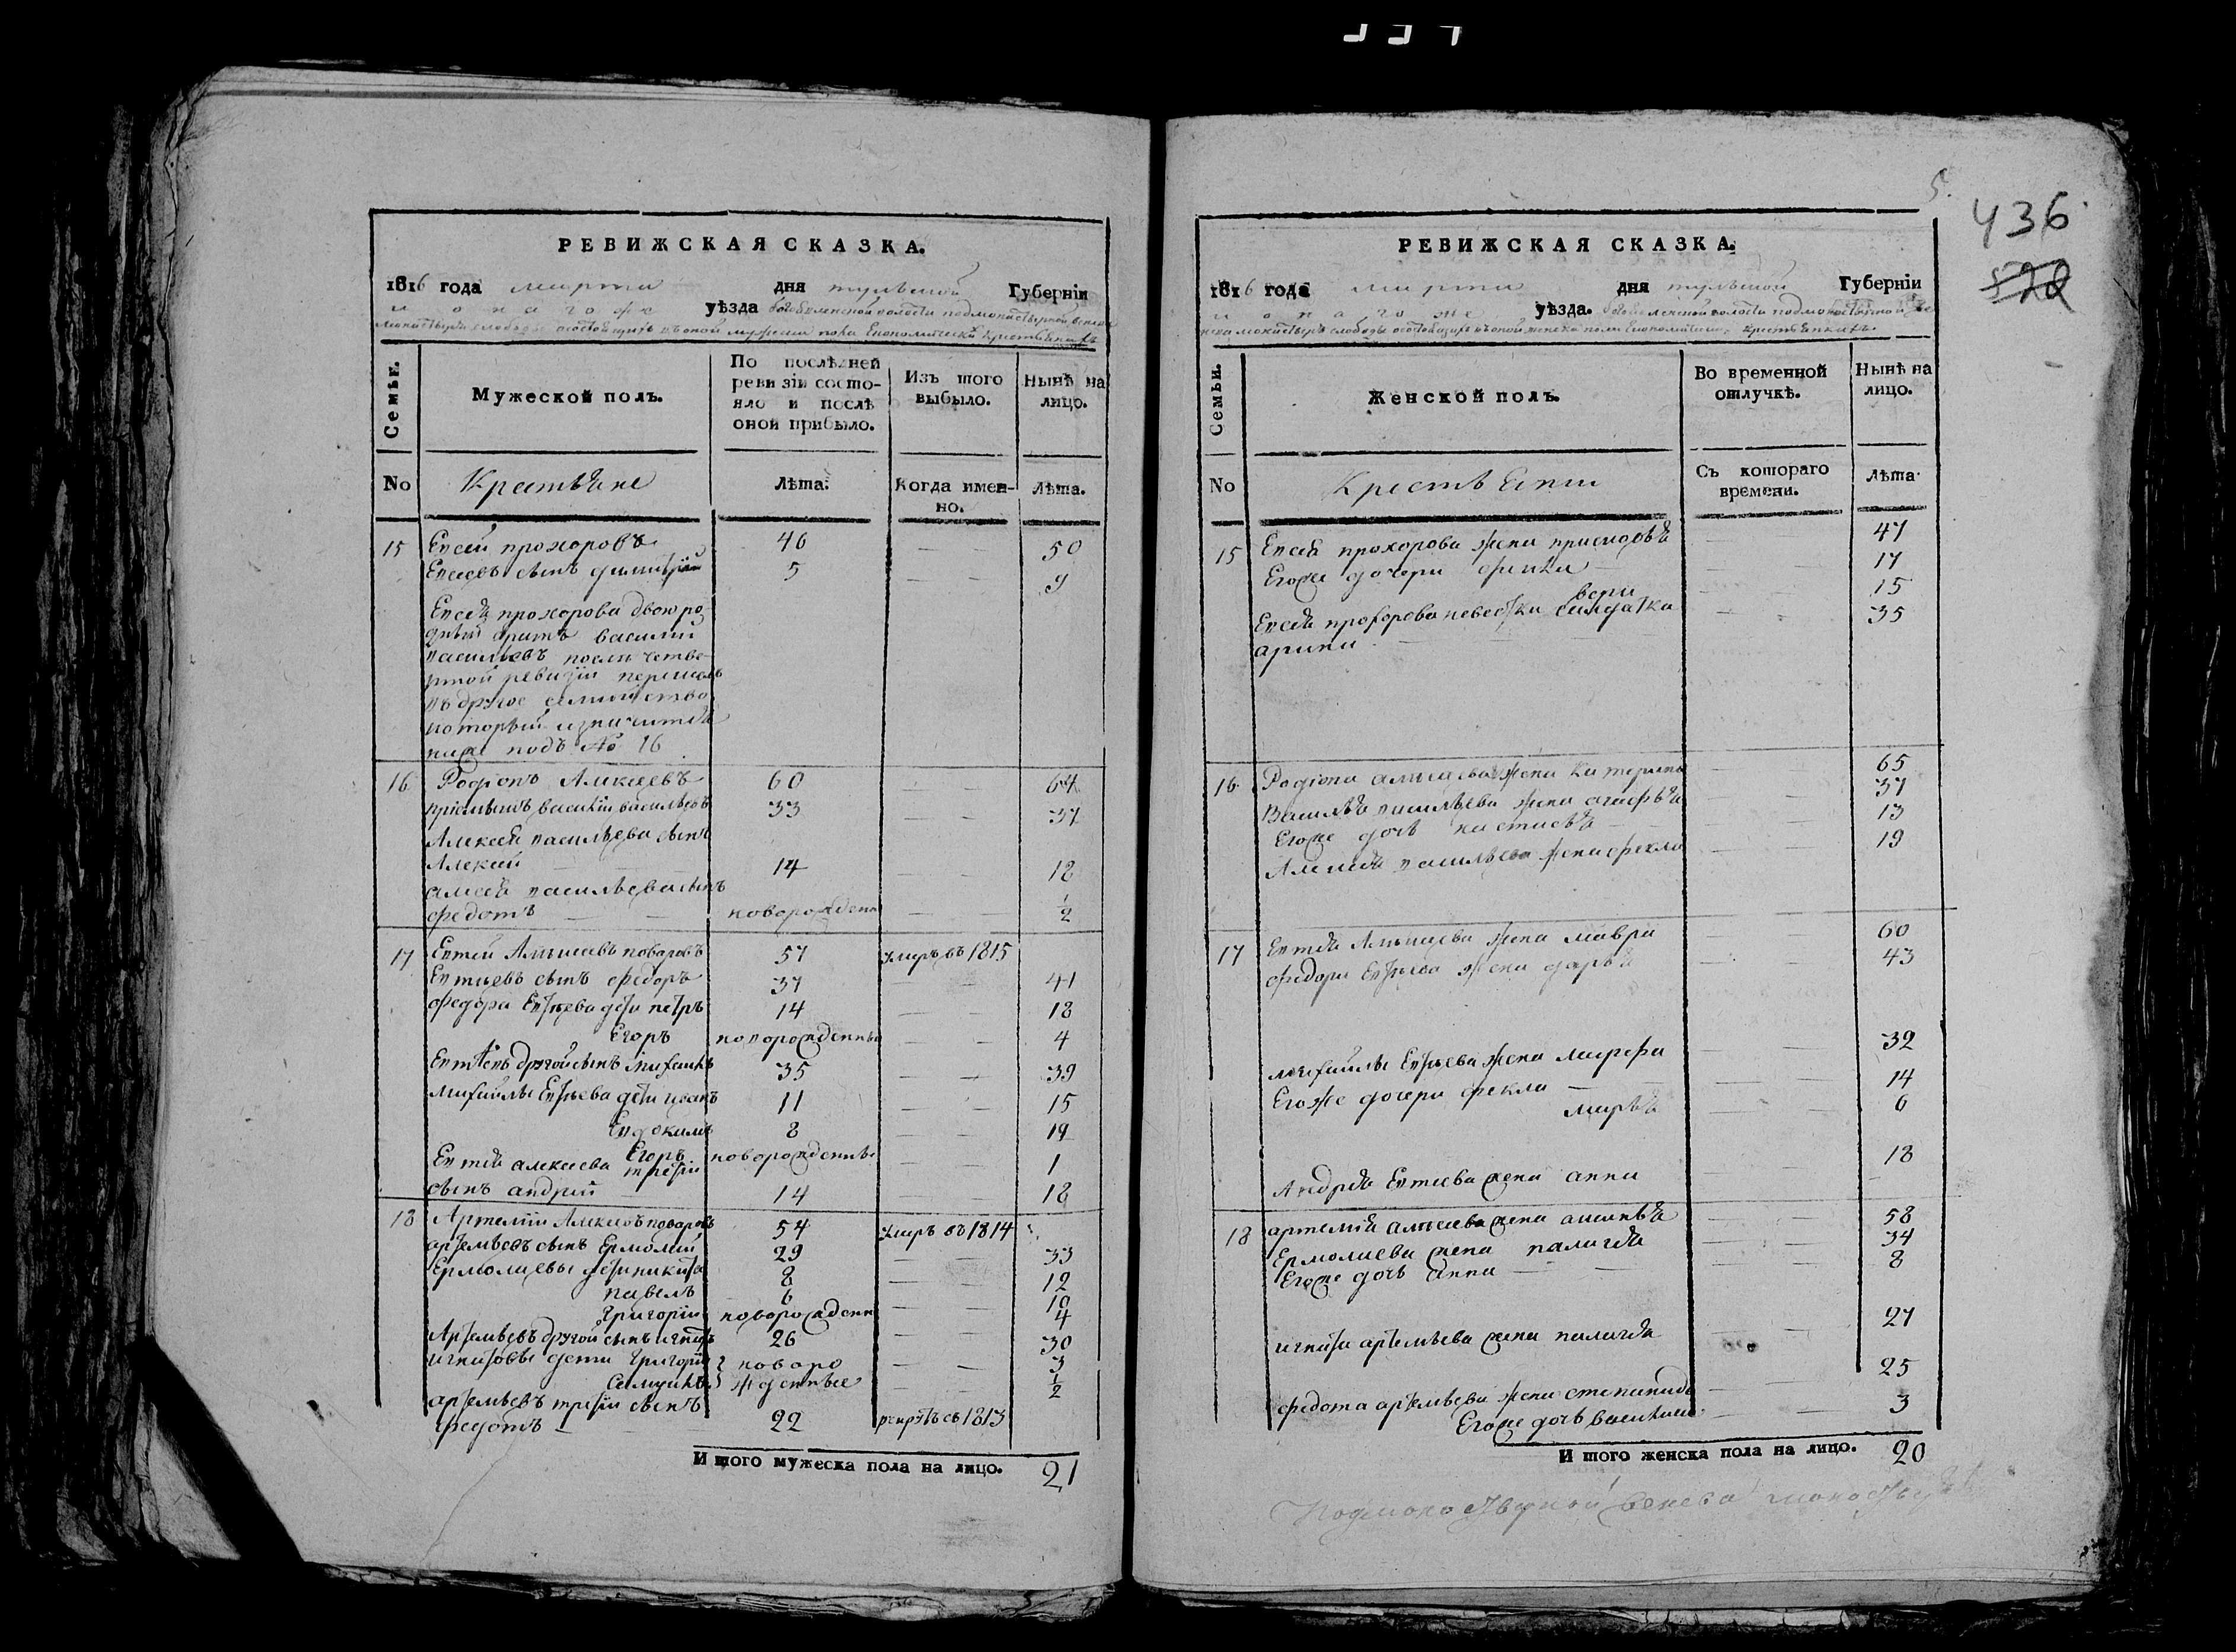 РЕВИЖСКАЯ СКАЗКА.
1816 года марта дня тульской Губерніи
и о наго же уѣзда волости подмонастырной
монастыря слободы состоящихъ въ оной мужеска пола Економическихъ крестьянахъ
Семьи.
Мужеской полъ.
По послѣдней
ревизіи состо-
яло и послѣ
оной прибыло.
Изъ того
выбыло.
Нынѣ на
лицо.
No
Крестьяне
Лѣта.
Когда имен-
но.
Лѣта.
15 Евсей прохоровъ 46 — — 50
Евсеевъ сынъ димитрій 5 — — 9
Евсея прохорова двоюро
дный братъ василий
васильевъ после четве
ртой ревизіи перешолъ
въ другое семейство
который значится
ниже подъ № 16
16 Родіонъ Алексеевъ 60 — — 64
приемышъ василій васильевъ 33 — — 37
Алексей васильева сынъ
Алексей — — 14 — — 18
васильева сынъ
федотъ — — новорожденъ — — 1/2
17 Евтей Алексеевъ поваровъ 57 умръ въ 1815
Евтиевъ сынъ федоръ 37 — — 41
федора Евтеева дети петръ 14 — — 18
Егоръ новорожденны — — 4
Евтиевъ другой сынъ михаила 35 — — 39
михайлы Евтеева дети иванъ 11 — — 15
Евдокимъ 8 — — 12
Егоръ новорожденны — — 1
Евтея алексеева третий
сынъ андрей 14 18
18 Артемий Алексеевъ поваровъ 54 умръ въ 1814
артемьевъ сынъ Ермолай 29 — — 33
Ермолаевы дети никита 8 — — 12
павелъ 6 10
Григорій новорожденны — — 4
Артемьевъ другой сынъ игнатъ 26 — — 30
игнатовы дети Григорій новоро — — 3
Самуила жденные — — 1/2
артемьевъ третій сынъ
федотъ — 22 рекрутъ съ 1813
И того мужеска пола на лицо. 21
5.
436
РЕВИЖСКАЯ СКАЗКА.
1816 года марта дня тульской Губерніи
и о наго же уѣзда. волости подмонастырной
монастыря слободы состоящихъ въ оной женска пола Економическихъ крестьянкахъ.
Семьи.
Женской полъ.
Во временной
отлучкѣ.
Нынѣ на
лицо.
No
Крестьянки
Съ котораго
времени.
Лѣта.
15 Евсея прохорова жена 47
Егоже дочери 17
15
Евсея прохорова невестка салдатка 35
арина
16 Родіона алексеева жена катерина 65
Василья васильева жена агафья 37
Егоже дочь настасья 13
Алексея васильева жена фекла 19
17 Евтея Алексеева жена мавра 60
федора Евтеева жена дарья 43
михайлы Евтеева жена марфа 32
Егоже дочери фекла 14
марья 6
Андрея Евтиева жена анна 18
18 артемия алексеева жена 58
Ермолаева жена палагея 34
Егоже дочь анна 8
игната артемьева жена палагея 27
федота артемьева жена степанида 25
Егоже дочь василиса 3
И того женска пола на лицо. 20
Подмонастырной венева монастыря